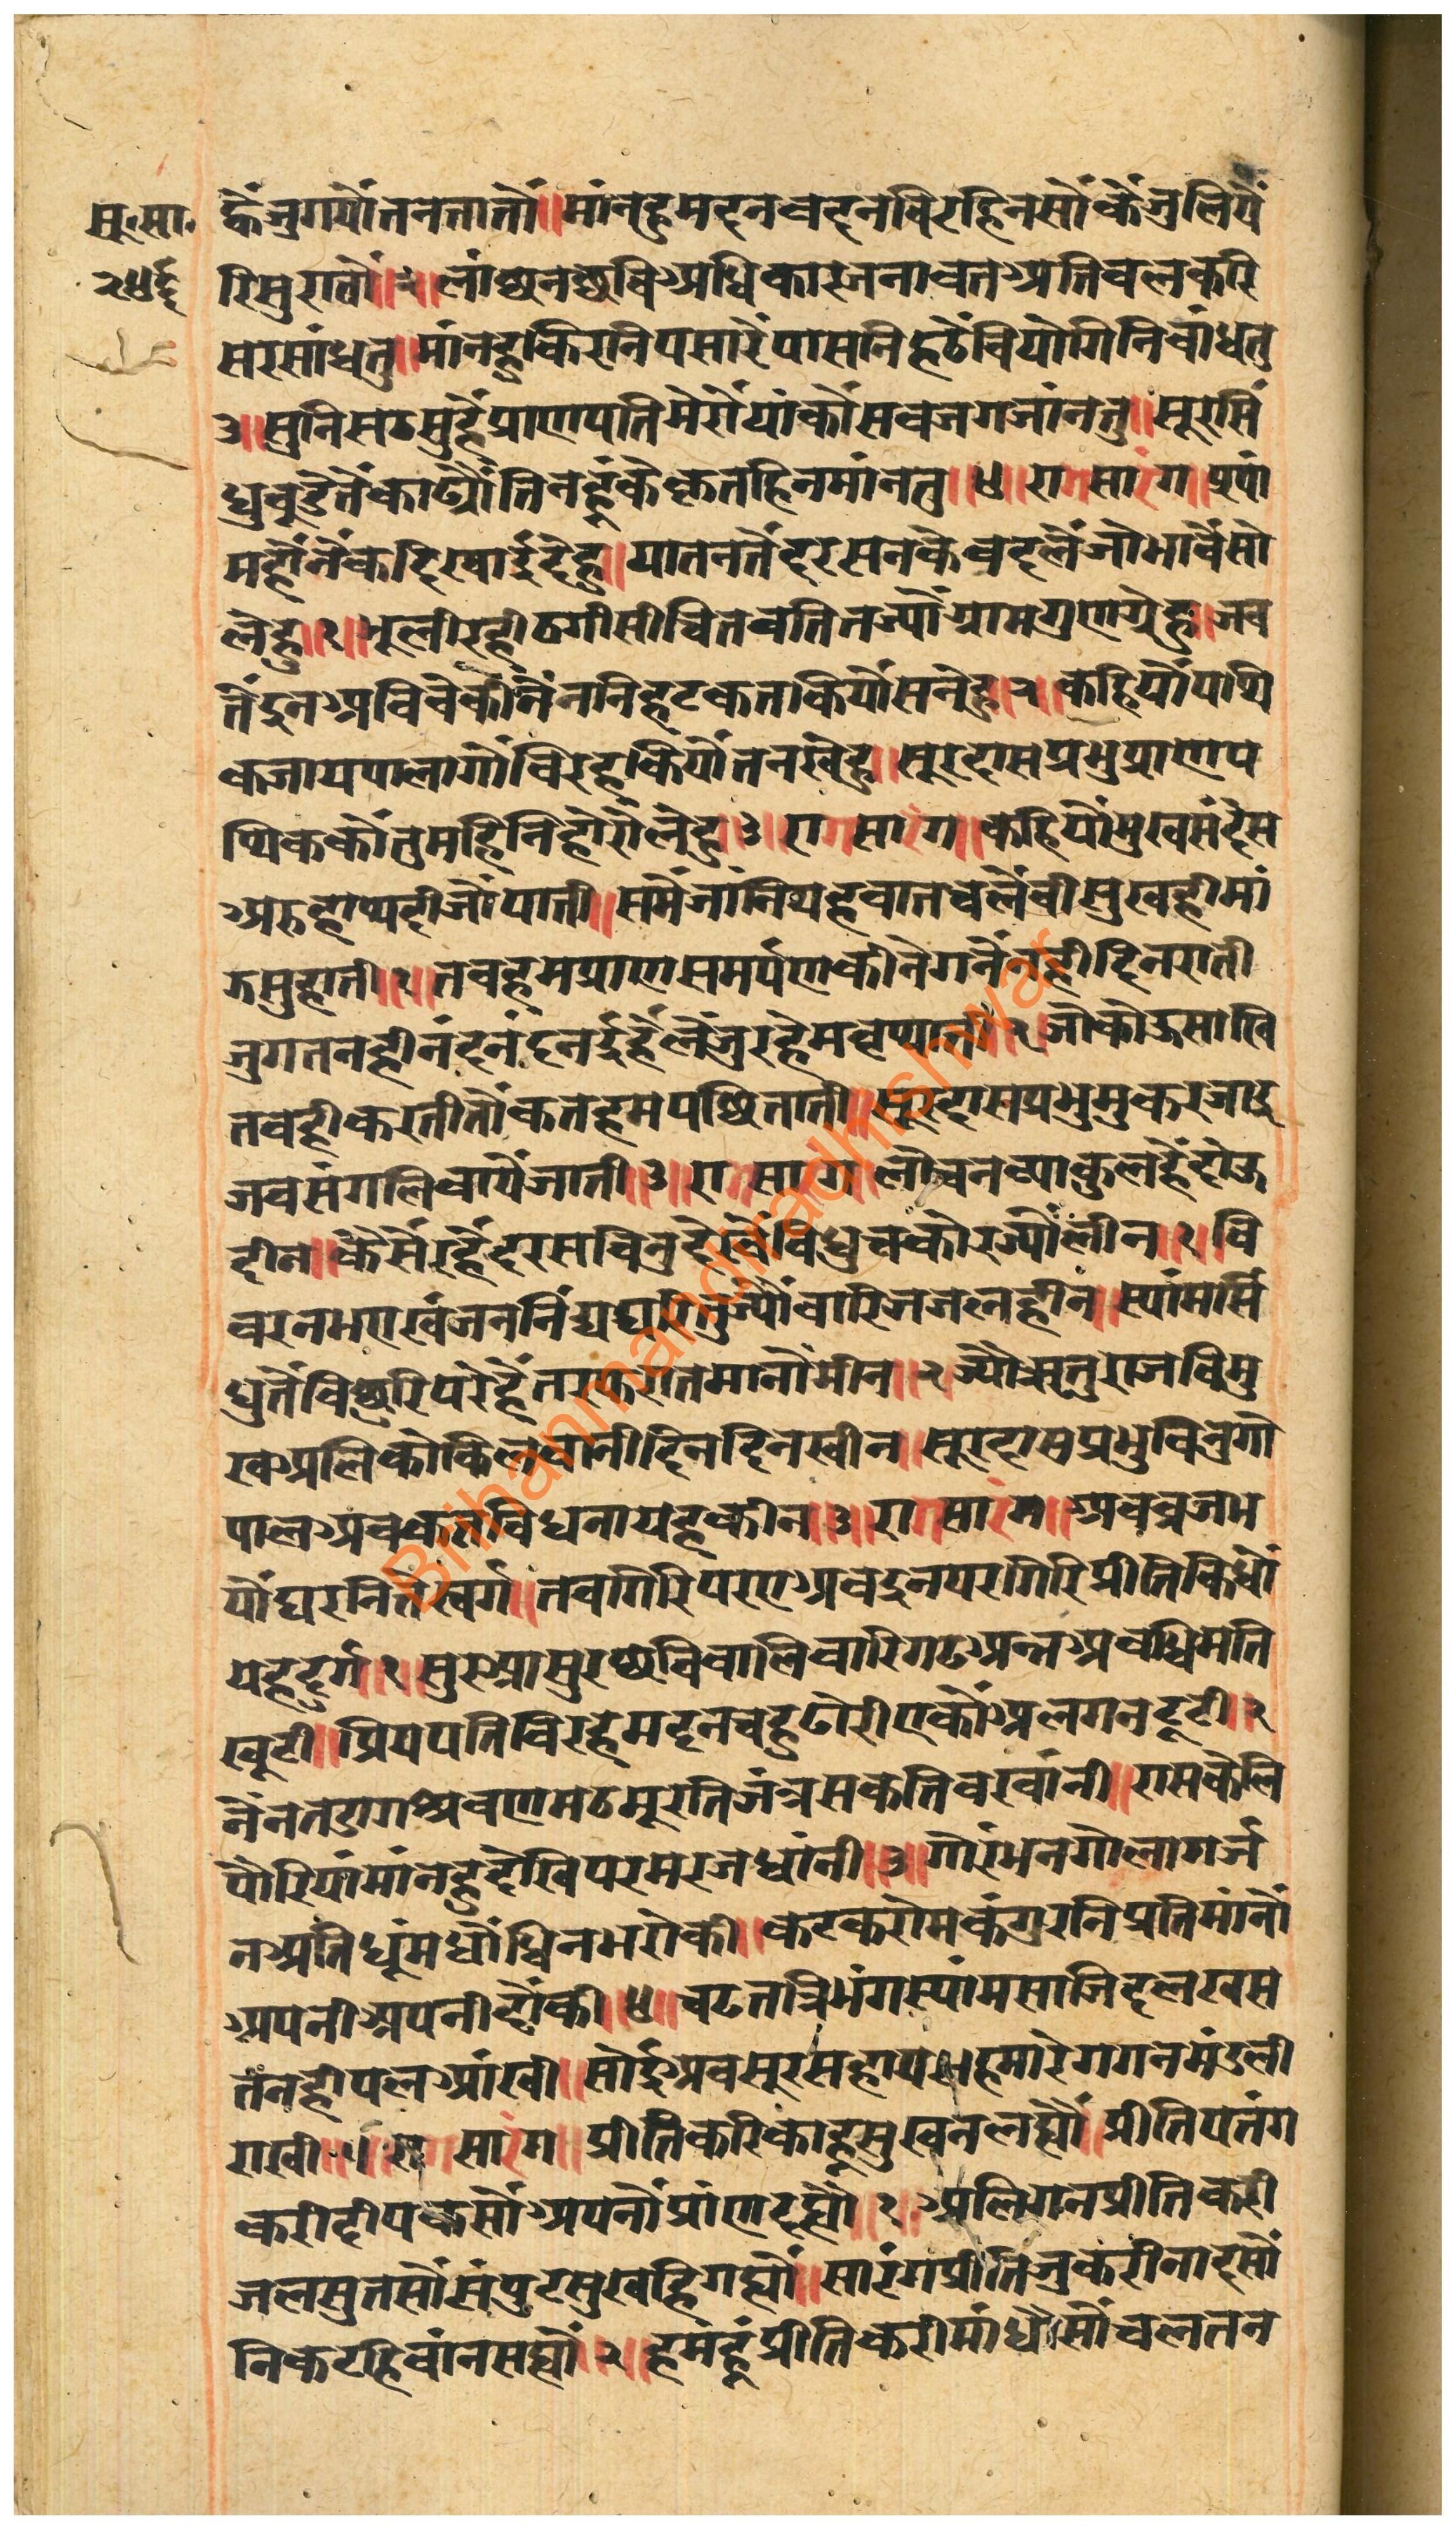 सू॰सा॰
२५६
ह्वैंजुगयौंतनतातौं॥मांनहुमदनवदनविरहिनसौंकैंजुलियें
रिसुरातौं॥२॥लांछनछविअधिकारजनावतअतिवलकरि
सरसांधतु॥मांनहुकिरनिपसारेंपासनिहठैंवियोगिनिवांधतु
३॥सुनिसठसुहैंप्राणपतिमेरौयांकौंसवजगजांनतु॥सूरसिं
धुवुडेतेंकाढ्यौंतिनहूंकैकृतहिनमांनतु॥४॥रागसारंग॥पूपां
महौंनेंकदिखाईदेहु॥यातनतेंदरसनकेवदलेंजोभावैंसो
लेहु॥१॥भूलीरहीठगीसीचितवतितज्योंग्रामगुणग्रेहु॥जव
तेंदुनअविवेकीनेंननिहटकतकियौंसनेहु।२।कहियौंपथि
कजायपालागौंविरहकियौंतनखेहु॥सूरदासप्रभुप्राणप
थिककौंतुमहिनिहोरौलेहु॥३॥रागसारंग॥कहियौंमुखसंदेस
अरुहाथदीजौंपाती॥समैंजांनियहवातचलैंवीसुखहीमां
ऊसुहाती॥१॥तवहमप्राणसमर्पणकीनेगनेंनहीदिनराती
जुगतनहीनंदनंदनईहैंलेंजुरहेमधुथाती॥२॥जोकोऊसाखि
तवहीकरतीतौंकतहमपछिताती॥सूरदासप्रभुमुकरजादू
जवसंगलिवायेंजाती॥३॥रागसारंग॥लोचनव्याकुलहैंदोऊ
दीन॥कैंसेंरहैंदरसविनुदेखेंविधुचकोरज्योंलीन॥१॥वि
वरनभएखंजननिंद्यद्यतिनुज्योंवारिजजलहीन॥स्यांमसिं
धुतेंविछुरिपरेहैंतरफरातमानौंमीन॥२॥ज्योंरितुराजविमु
खअलिकोकिलवानीदिनदिनखीन॥सूरदासप्रभुविनुगो
पालअवकतविधनायहकीन॥३॥रागसारंग॥अवव्रजभ
यौंघरनितेंखर्ग॥तवगिरिपरएअवदुनपरगिरिप्रीतिकिधौं
येहदुर्ग॥१॥सुरआसुरछविवालिवारिगढअन्नअवधिमति
खूटी॥प्रियपतिविरहेमदनचहुढोरीएकौंअलगनटूटी॥२
नेंनतडागश्रवणमठमूरतिजंत्रसकतिवरवांनी॥रासकेलि
पौरियांमांनहुदेखिपरमरजधांनी॥३॥गोरंभनगोलागर्ज
नअतिधूंमधौंधिनभरोकी॥कटकरोमकंगुरनिप्रतिमांनौं
अपनीअपनीढौंकी॥४॥चढतत्रिभंगस्यांमसाजिदलखस
तंनहीपलआंखी॥सोईअवसूरसहायहमारेगगनमंडली
राखी॥५॥रागसारंग॥प्रीतिकरिकाहूसुखनलह्यौं॥प्रीतिपतंग
करीदीपकसौंअपनौंप्रांणदह्यौं॥१॥अलिगनप्रीतिकरी
जलसुतसौंसंपुटसुखहिगह्यौं॥सारंगप्रीतिजुकरीनादसौं
निकटहिवांनसह्यौं॥२॥हमंहूंप्रीतिकरीमांधौसौंचलतन
Brihanmandiradhishwar